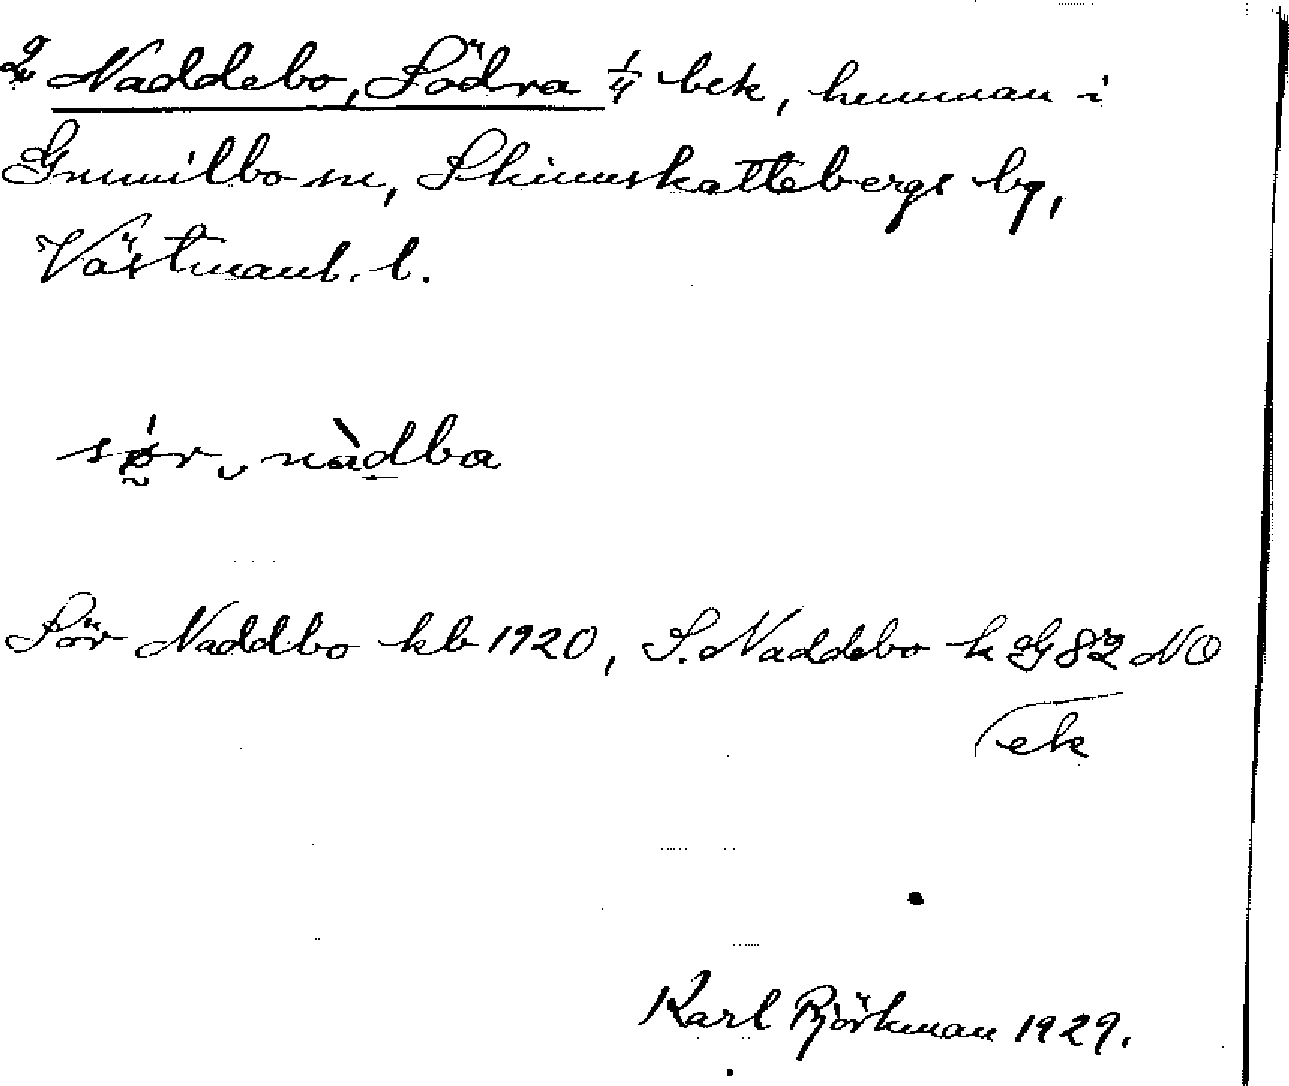 2 Naddebo, Södra 1/4 bek, hemman i
Gunnilbo sn, Skinnskattebergs bg,
Västmanl. l.
sǿ̰r ‿ nàdba
Sör Naddbo kb 1920, S. Naddebo k G 82 NO
ek
Karl Björkman 1929.